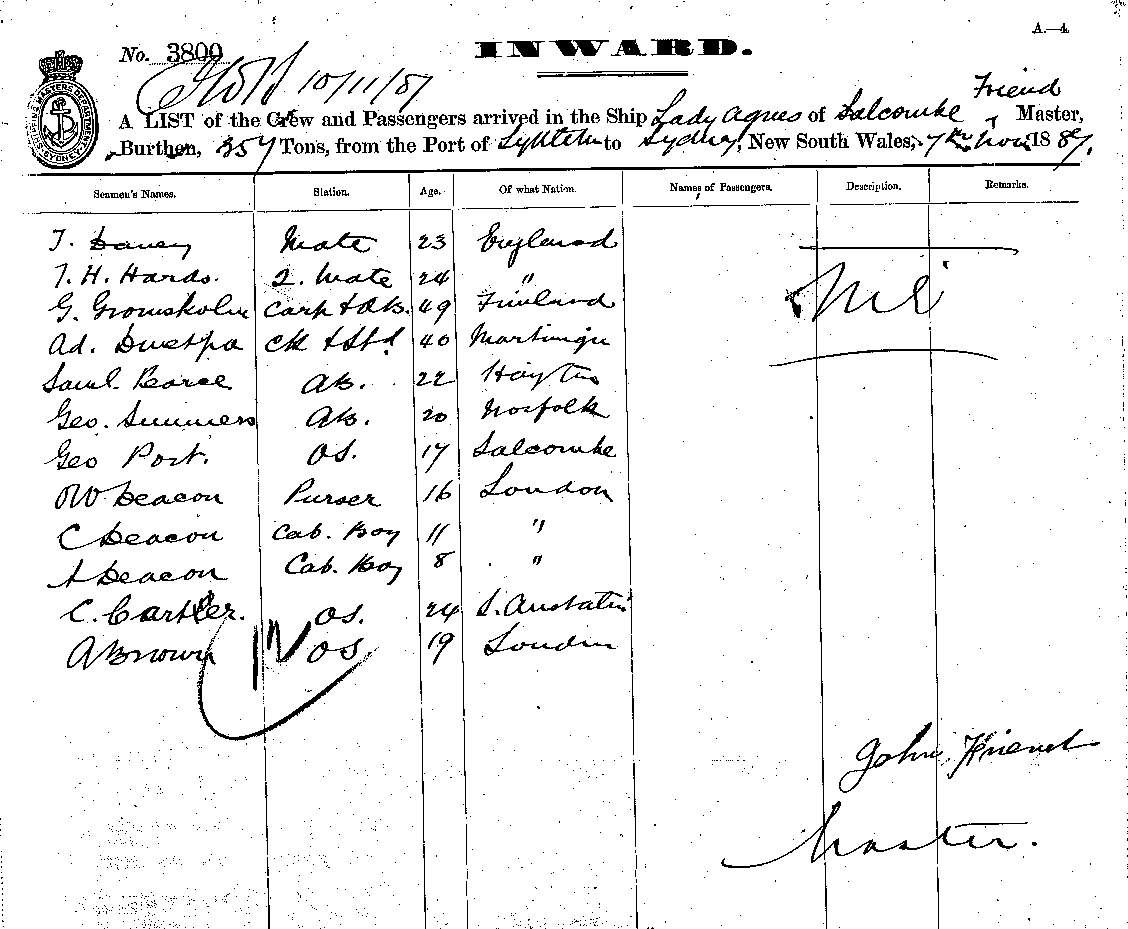 A.—4.
No. 3800
INWARD.
10/11/87
Friend
A LIST of the Crew and Passengers arrived in the Ship Lady Agnes of Salcombe, Master,
Burthen, 357 Tons, from the Port of to Sydney, New South Wales, 7th Nov. 1887.
Seamen's Names. Station. Age. Of what Nation. Names of Passengers. Description. Remarks.
T. Davey Mate 23 England
T. H. Hards. 2. Mate 24 "
G. Gromskolm Carp & Ab. 49 Finland
Ad. Ck & Std. 40
Saml. Pearce Ab. 22
Geo. Summers Ab. 20 Norfolk
Geo Port. OS. 17 Salcombe
OW Deacon Purser 16 London
C Deacon Cab. Boy 11 "
A Deacon Cab. Boy 8 "
C. OS. 24
A Brown OS 19 London
Nil
John Friend
Master.